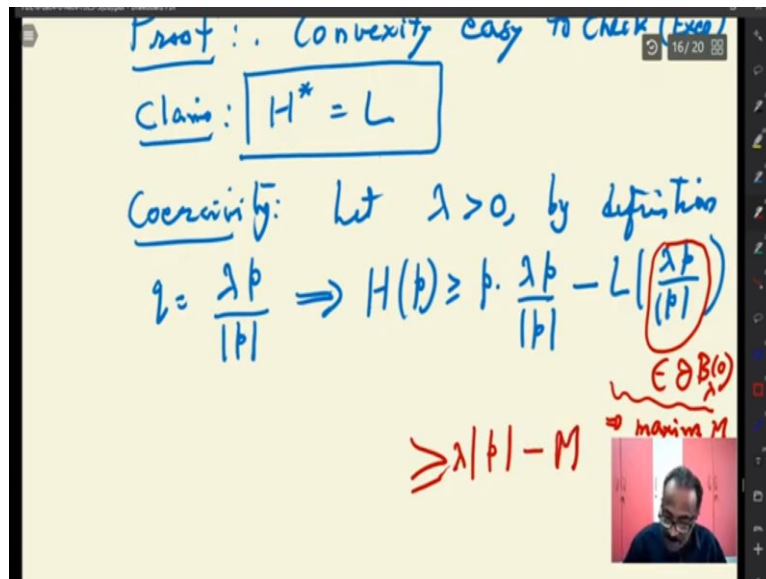 Proof: . Convexity easy to check (Exer)
16/20
Claim: H* = L
Coercivity: Let λ > 0, by definition
q = λp/|p| ⟹ H(p) ≥ p. λp/|p| − L(λp/|p|)
∈ ∂B_λ(0)
⇒ maxims M
≥ λ|p| − M